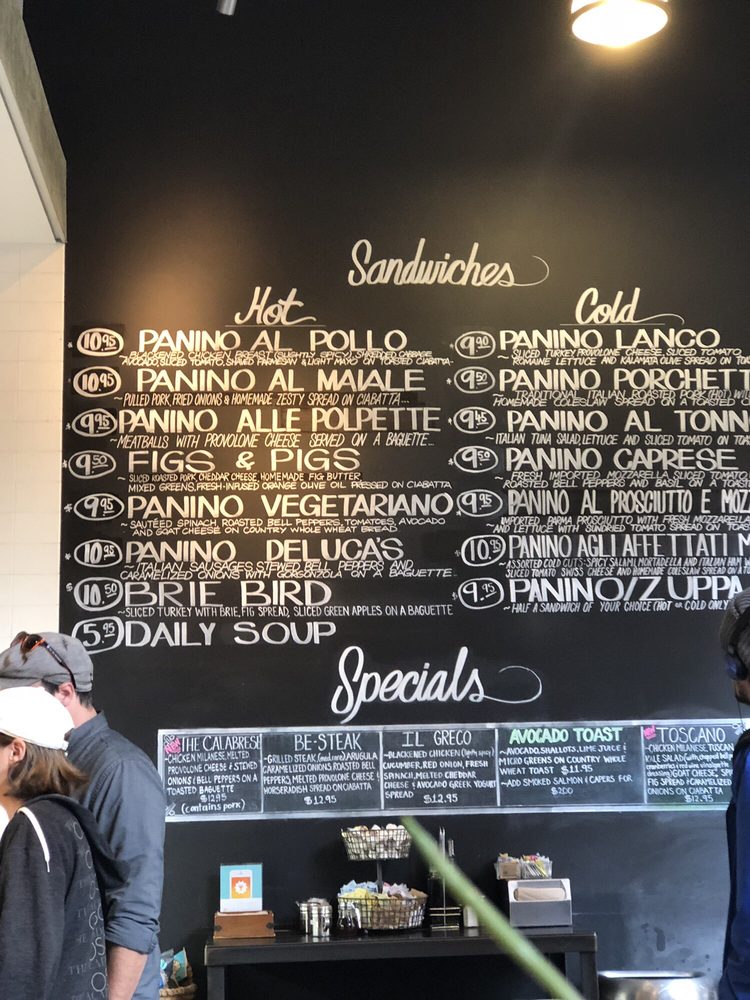 Sandwiches
Hot
10.95 PANINO AL POLLO
BLACKENED CHICKEN BREAST (SLIGHTLY SPICY) SHREDDED CABBAGE
AVOCADO, SLICED TOMATO, SHAVED PARMESAN & LIGHT MAYO ON TOASTED CIABATTA
10.95 PANINO AL MAIALE
~PULLED PORK, FRIED ONIONS & HOMEMADE ZESTY SPREAD ON CIABATTA...
9.95 PANINO ALLE POLPETTE
~MEATBALLS WITH PROVOLONE CHEESE SERVED ON A BAGUETTE...
9.50 FIGS & PIGS
~SLICED ROASTED PORK, CHEDDAR CHEESE, HOMEMADE FIG BUTTER
MIXED GREENS, FRESH-INFUSED ORANGE OLIVE OIL PRESSED ON CIABATTA
9.95 PANINO VEGETARIANO
~SAUTÉED SPINACH, ROASTED BELL PEPPERS, TOMATOES, AVOCADO
AND GOAT CHEESE ON COUNTRY WHOLE WHEAT BREAD
10.95 PANINO DELUCA'S
~ITALIAN SAUSAGES, STEWED BELL PEPPERS AND
CARAMELIZED ONIONS WITH GORGONZOLA ON A BAGUETTE...
10.50 BRIE BIRD
~SLICED TURKEY WITH BRIE, FIG SPREAD, SLICED GREEN APPLES ON A BAGUETTE
5.95 DAILY SOUP
Cold
9.90 PANINO LANCO
~SLICED TURKEY PROVOLONE CHEESE, SLICED TOMATO
ROMAINE LETTUCE AND KALAMATA OLIVE SPREAD ON TOA
9.50 PANINO PORCHETT
~TRADITIONAL ITALIAN ROASTED PORK (HOT) WI
HOMEMADE COLESLAW SPREAD ON A TOASTED C
9.45 PANINO AL TONN
~ITALIAN TUNA SALAD, LETTUCE AND SLICED TOMATO ON TOAS
9.50 PANINO CAPRESE
~FRESH IMPORTED MOZZARELLA SLICED TOMATO
ROASTED BELL PEPPERS AND BASIL ON A TOAST
9.95 PANINO AL PROSCIUTTO E MOZZ
IMPORTED PARMA PROSCIUTTO WITH FRESH MOZZARELLA
AND LETTUCE WITH SUNDRIED TOMATO SPREAD ON TOAST
10.95 PANINO AGLI AFFETTATI M
~ASSORTED COLD CUTS: SPICY SALAMI, MORTADELLA AND ITALIAN HAM W
SLICED TOMATO SWISS CHEESE AND HOMEMADE COLESLAW SPREAD ON A
9.95 PANINO/ZUPPA
~HALF A SANDWICH OF YOUR CHOICE (HOT OR COLD ONLY
Specials
THE CALABRESE
~CHICKEN MILANESE, MELTED
PROVOLONE CHEESE & STEWED
ONIONS & BELL PEPPERS ON A
TOASTED BAGUETTE
$12.95
(contains pork)
BE-STEAK
~GRILLED STEAK (med, rare), ARUGULA
CARAMELIZED ONIONS, ROASTED BELL
PEPPERS, MELTED PROVOLONE CHEESE &
HORSERADISH SPREAD ON CIABATTA
$12.95
IL GRECO
~BLACKENED CHICKEN (lightly spicy)
CUCUMBER, RED ONION, FRESH
SPINACH, MELTED CHEDDAR
CHEESE & AVOCADO GREEK YOGURT
SPREAD $12.95
AVOCADO TOAST
~AVOCADO, SHALLOTS, LIME JUICE &
MICRO GREENS ON COUNTRY WHOLE
WHEAT TOAST $11.95
~ADD SMOKED SALMON & CAPERS FOR
$2.00
TOSCANO
~CHICKEN MILANESE, TUSCAN
KALE SALAD
dressing), GOAT CHEESE,
FIG SPREAD & CARAMELIZED
ONIONS ON CIABATTA
$12.95